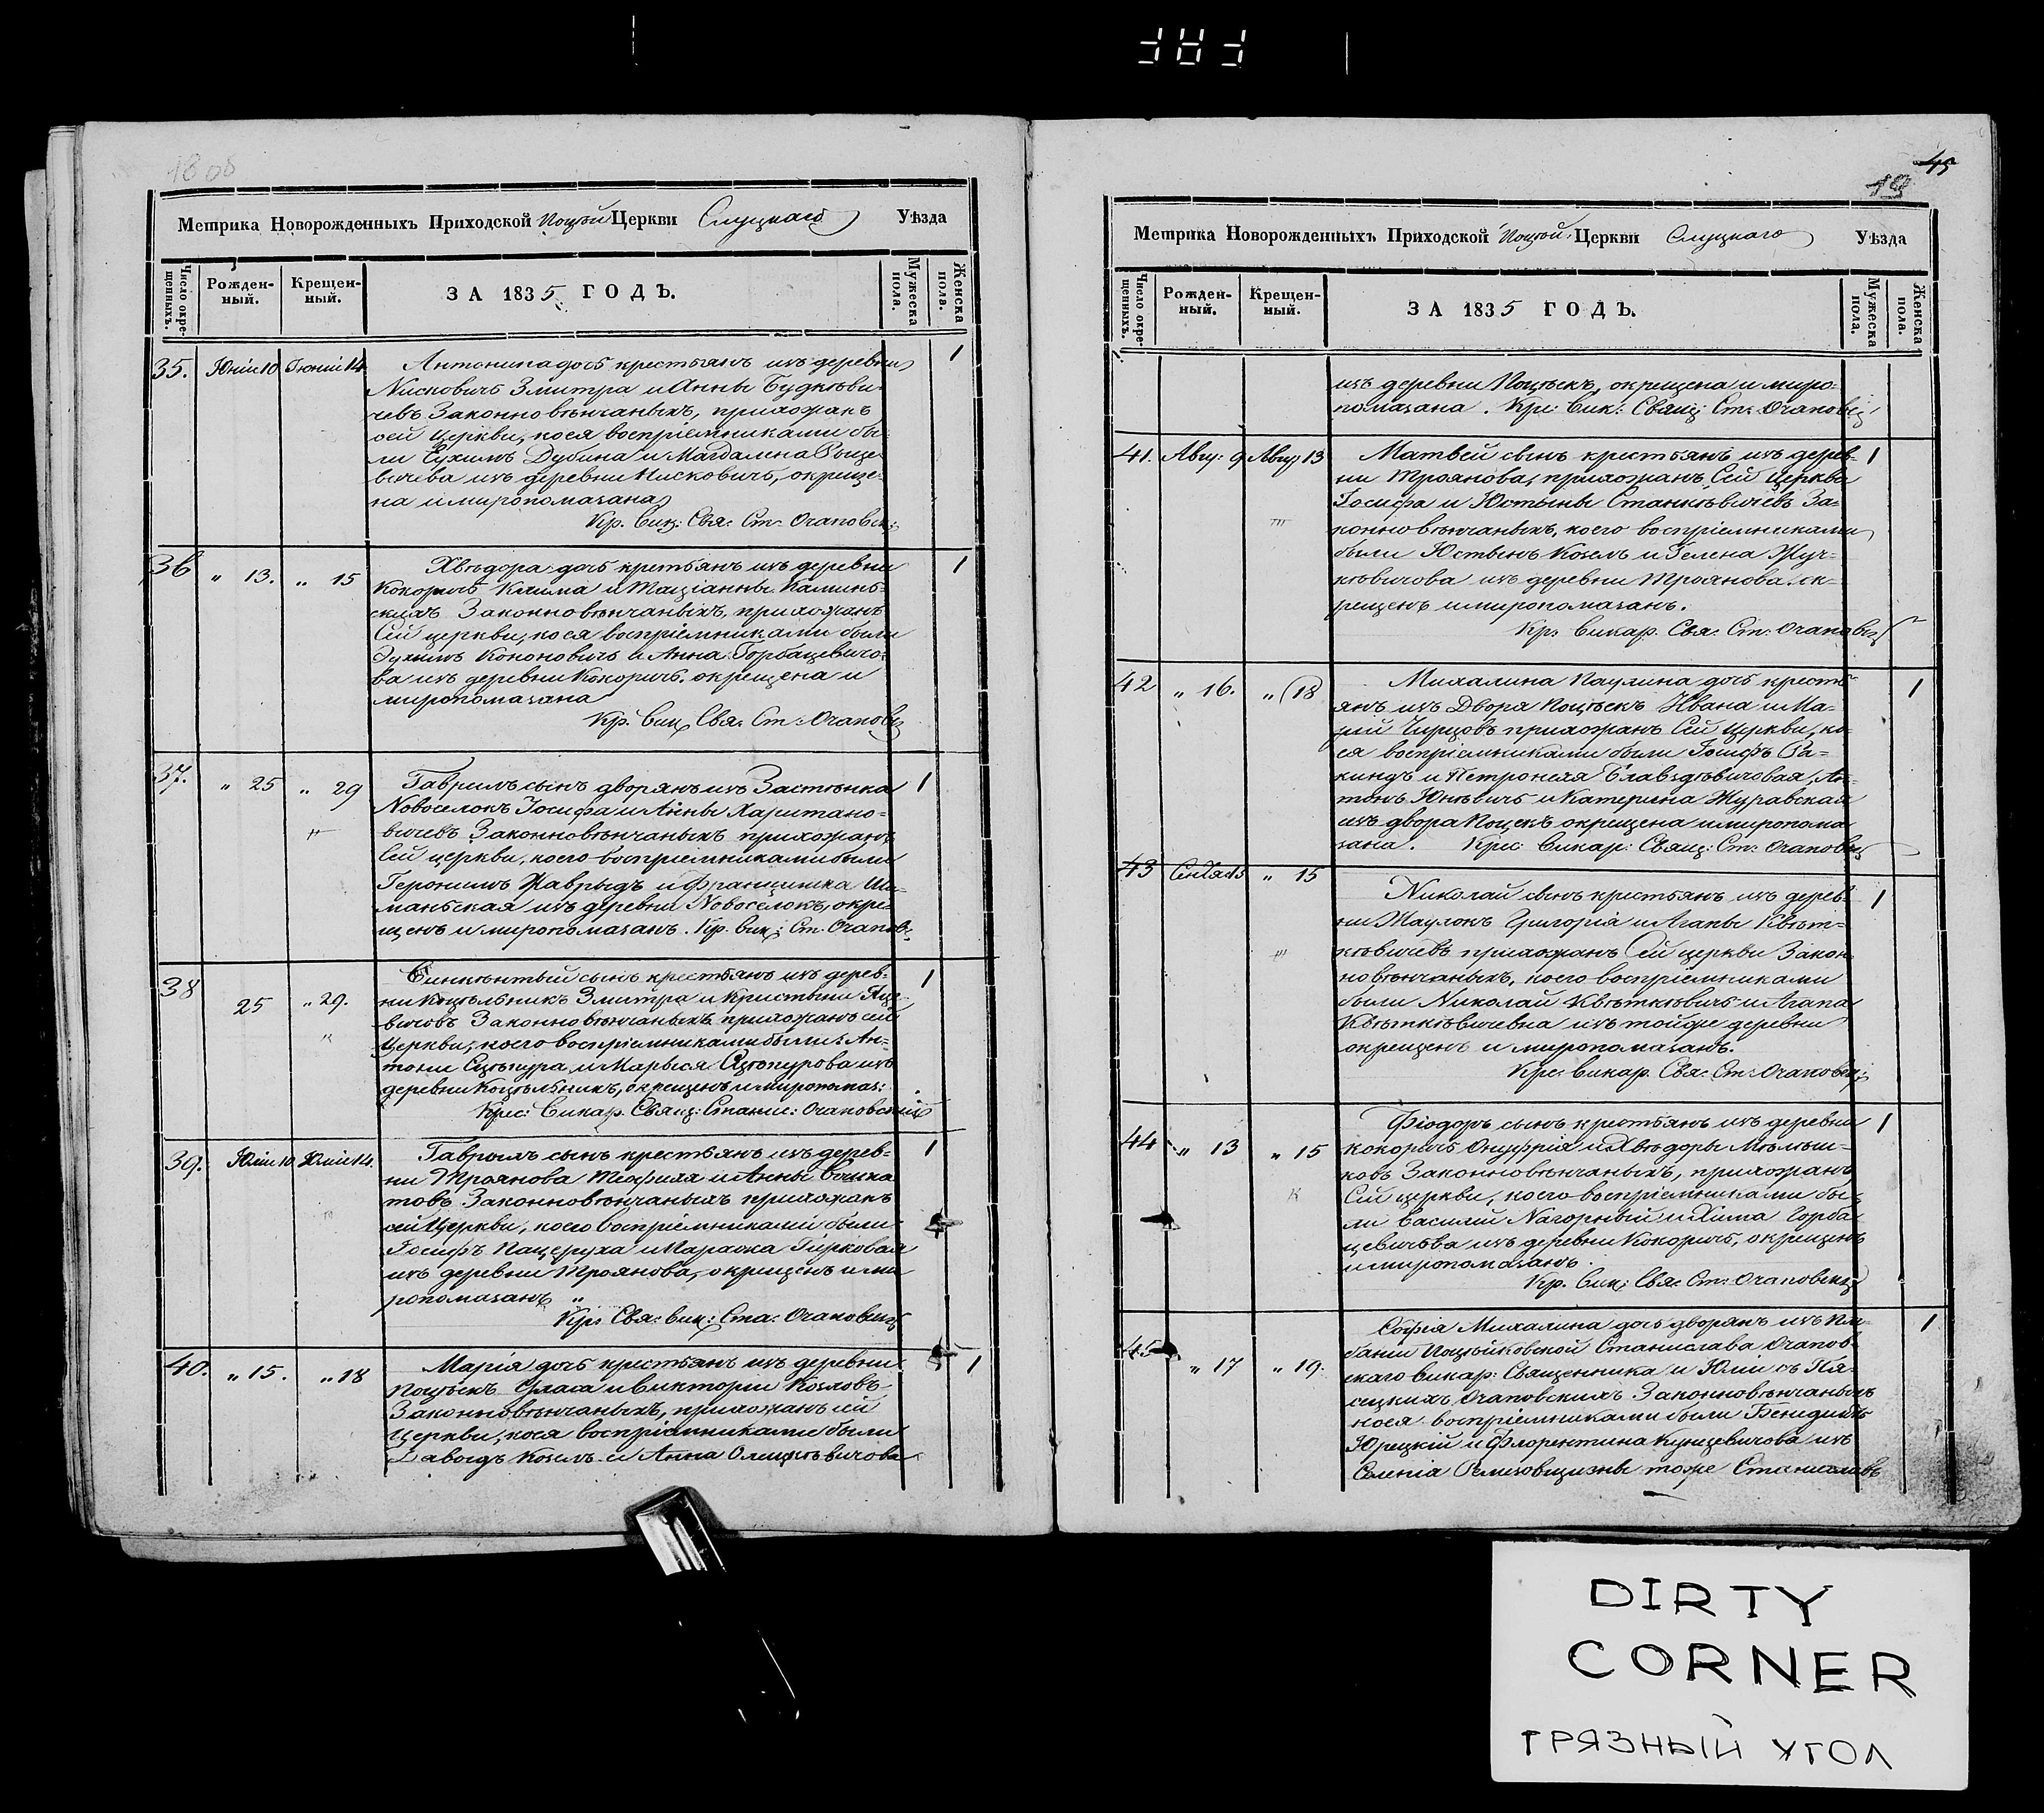 Метрика Новорожденныхъ Приходской Поцѣй Церкви Слуцкаго Уѣзда
Число окрещенныхъ. Рожденный. Крещенный. ЗА 1835 ГОДЪ. Мужеска пола. Женска пола.
35. Юнiи 10 Iюнiи 14 Антонина дочь крестьянъ изъ деревни 1
Писковичъ Змитра и Анны Будкѣви-
чевъ Законновѣнчаныхъ, прихожанъ
сей Церкви, коея воспрiемниками бы-
ли Ѐухимъ Дубина и Магдалена
вичева изъ деревни Писковичъ, окреще-
на и миропомазана
Кр. Вик: Свя: Ст: Очаповск:
36 „ 13. „ 15 Хвѣдора дочь крстьянъ изъ деревни 1
Кокоричъ Клима и Тацiанны Каминь-
скихъ Законновѣнчаныхъ, прихожанъ
Сей церкви, коея воспрiемниками были
Эухимъ Кононовичъ и Анна Горбацевичо-
ва изъ деревни Кокоричъ. окрещена и
миропомазана
Кр. Вик Свя: Ст: Очаповск
37. „ 25 „ 29 Гаврилъ сынъ дворянъ изъ Застѣнка 1
Новоселокъ Iосифа и Анны Харитано-
вичевъ Законновѣнчаныхъ прихожанъ
Сей церкви, коего воспрiемниками были
Геронимъ Жаврыдъ и Францишка Ши-
маньская изъ деревни Новоселокъ, окре-
щенъ и миропомазанъ. Кр. Вик: Ст. Очапов:
38 25 „ 29. Винкѣнтый сынъ крестьянъ изъ дерев- 1
ни Коцѣльникъ Змитра и Кристыни Яце-
вичовъ Законновѣнчаныхъ прихожанъ сей
Церкви, коего воспрiемниками были: Ан-
тони и Марыся изъ
деревни Коцѣльникъ, окрещенъ и миропомаз:
Крес: Викар. Свящ: Станис: Очаповскiй
39. Юлiи 10 Юлiи 14. Гаврылъ сынъ крестьянъ изъ дерев- 1
ни Троянова Теофиля и Анны
товъ Законновѣнчаныхъ прихожанъ
сей Церкви, коего воспрiемниками были
Iосифъ Пацеруха и Марьяна Гирковая
изъ деревни Троянова, окрещенъ и ми
ропомазанъ „
Кр: Свя: Вик: Ста: Очаповск
40. „ 15. „ 18 Марiя дочь крестьянъ изъ деревни 1
Поцѣекъ Уласа и Викторiи Козловъ
Законновѣнчаныхъ, прихожанъ сей
Церкви, коея воспрiемниками были
Давыдъ Козелъ и Анна Олешкѣвичова
45
Метрика Новорожденныхъ Приходской Поцѣй Церкви Слуцкаго Уѣзда
Число окрещенныхъ. Рожденный. Крещенный. ЗА 1835 ГОДЪ. Мужеска пола. Женска пола.
изъ деревни Поцѣекъ, окрещена и миро-
помазана. Крс: Вик: Свящ: Ст: Очаповск
41. Авгу: 9 Авгу: 13 Матвей сынъ крестьянъ изъ дерев- 1
ни Троянова, прихожанъ Сей Церкви
Iосифа и Юстыны Станкѣвичевъ За-
конновѣнчаныхъ, коего воспрiемниками
были Юстынъ Козелъ и Гелена Жуч-
кѣвичова изъ деревни Троянова. ок-
рещенъ и миропомазанъ.
Кр: Викар. Свя: Ст: Очаповск
42 „ 16. „ 18 Михалина Паулина дочь кресть- 1
янъ изъ Двора Поцѣекъ Ивана и Ма-
рiи прихожанъ Сей Церкви, ко-
ея воспрiемниками были Iосифъ Ра-
киндъ и Петронеля Блавздѣвичовая, Ан-
тонъ Юнѣвичъ и Катерина Журавская
изъ двора Поцеекъ окрещена и миропома
зана. Крес: Викар: Свящ: Ст: Очаповск
43 „ 15 Николай сынъ крестьянъ изъ дерев- 1
ни Жаулокъ Григорiя и Агапы Квѣт-
кѣвичевъ прихожанъ Сей церкви Закон-
новѣнчаныхъ, коего воспрiемниками
были Николай Квѣткѣвичъ и Агапа
Квѣткѣвичевна изъ тойже деревни
окрещенъ и миропомазанъ.
Крс: Викар. Свя: Ст: Очаповск:
44 „ 13 „ 15 Фiодоръ сынъ крестьянъ изъ деревни 1
Кокоричъ Онуфрiя и Хвѣдоры
ковъ Законновѣнчаныхъ, прихожанъ
Сей церкви, коего воспрiемниками бы-
ли Василiй Нагорный и Хима Горба
цевичѣва изъ деревни Кокоричъ, окрещенъ
и миропомазанъ.
Кр. Вик: Свя: Ст: Очаповскi
45 „ 17 „ 19. Софiя Михалина дочь дворянъ изъ Пле- 1
банiи Поцѣйковской Станислава Очапов-
скаго викар: Священника и Юлiи съ Пя-
сецкихъ Очаповскихъ Законновѣнчаныхъ
коея воспрiемниками были Бенедиктъ
Юрецкiй и Флорентина Кунцевичова изъ
Селенiя тоже Станиславъ
DIRTY
CORNER
ГРЯЗНЫЙ УГОЛ